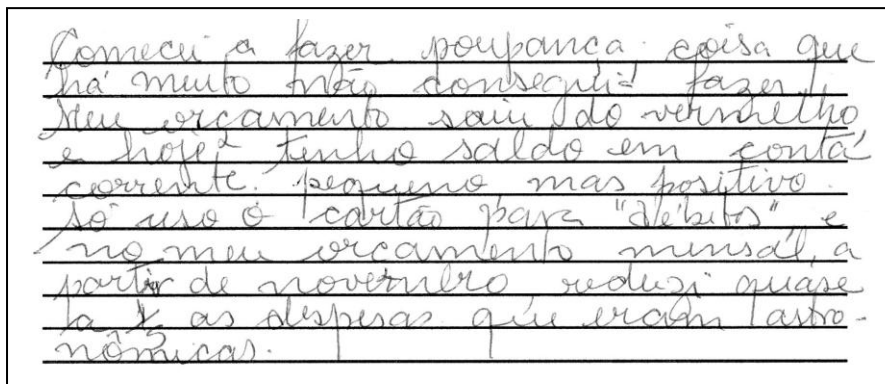 Comecei a fazer poupança. coisa que
há muito não conseguia fazer.
Meu orçamento saiu do vermelho
e hoje, tenho saldo em conta
corrente. pequeno mas positivo.
só uso o cartão para "débitos" e
no meu orçamento mensal, a
partir de novembro reduzi quase
a as despesas que eram astro-
nômicas.